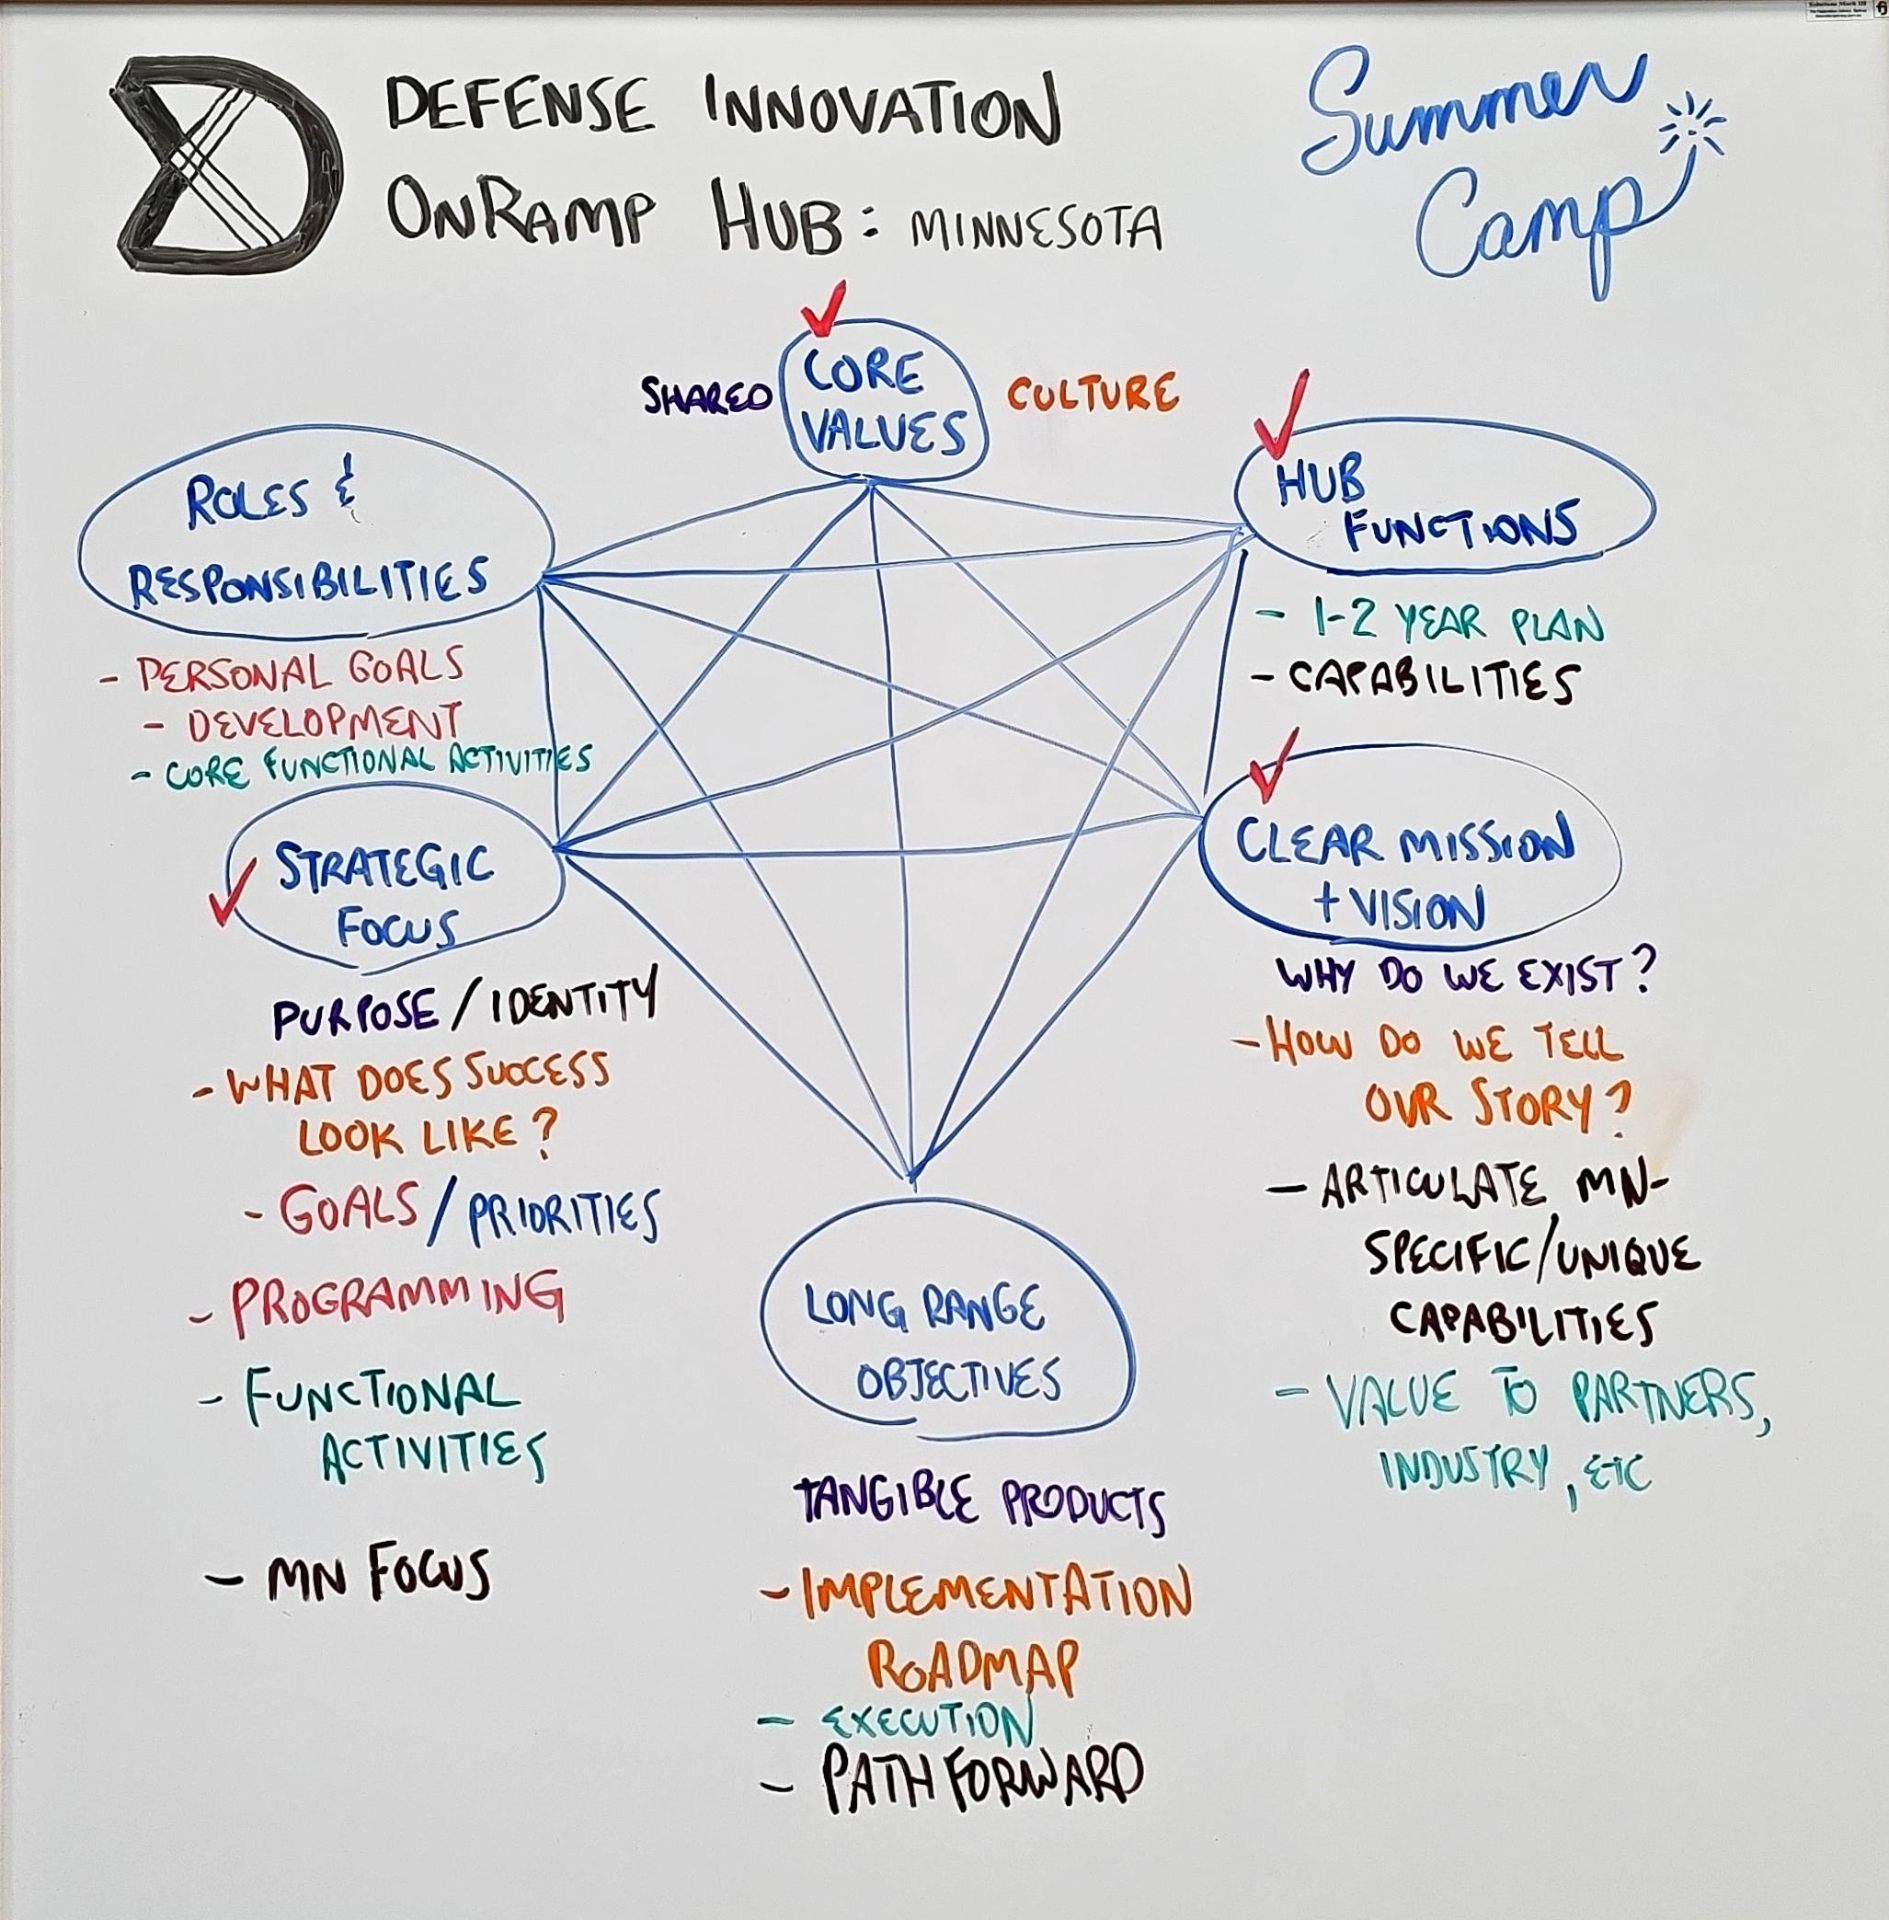 DEFENSE INNOVATION
ONRAMP HUB: MINNESOTA
Summer
Camp
SHARED
CORE
VALUES
CULTURE
ROLES &
RESPONSIBILITIES
- PERSONAL GOALS
- DEVELOPMENT
- CORE FUNCTIONAL ACTIVITIES
HUB
FUNCTIONS
- 1-2 YEAR PLAN
- CAPABILITIES
STRATEGIC
FOCUS
PURPOSE / IDENTITY
- WHAT DOES SUCCESS
LOOK LIKE?
- GOALS / PRIORITIES
- PROGRAMMING
- FUNCTIONAL
ACTIVITIES
- MN FOCUS
CLEAR MISSION
+ VISION
WHY DO WE EXIST?
- HOW DO WE TELL
OUR STORY?
- ARTICULATE MN-
SPECIFIC/UNIQUE
CAPABILITIES
- VALUE TO PARTNERS,
INDUSTRY, ETC
LONG RANGE
OBJECTIVES
TANGIBLE PRODUCTS
- IMPLEMENTATION
ROADMAP
- EXECUTION
- PATH FORWARD